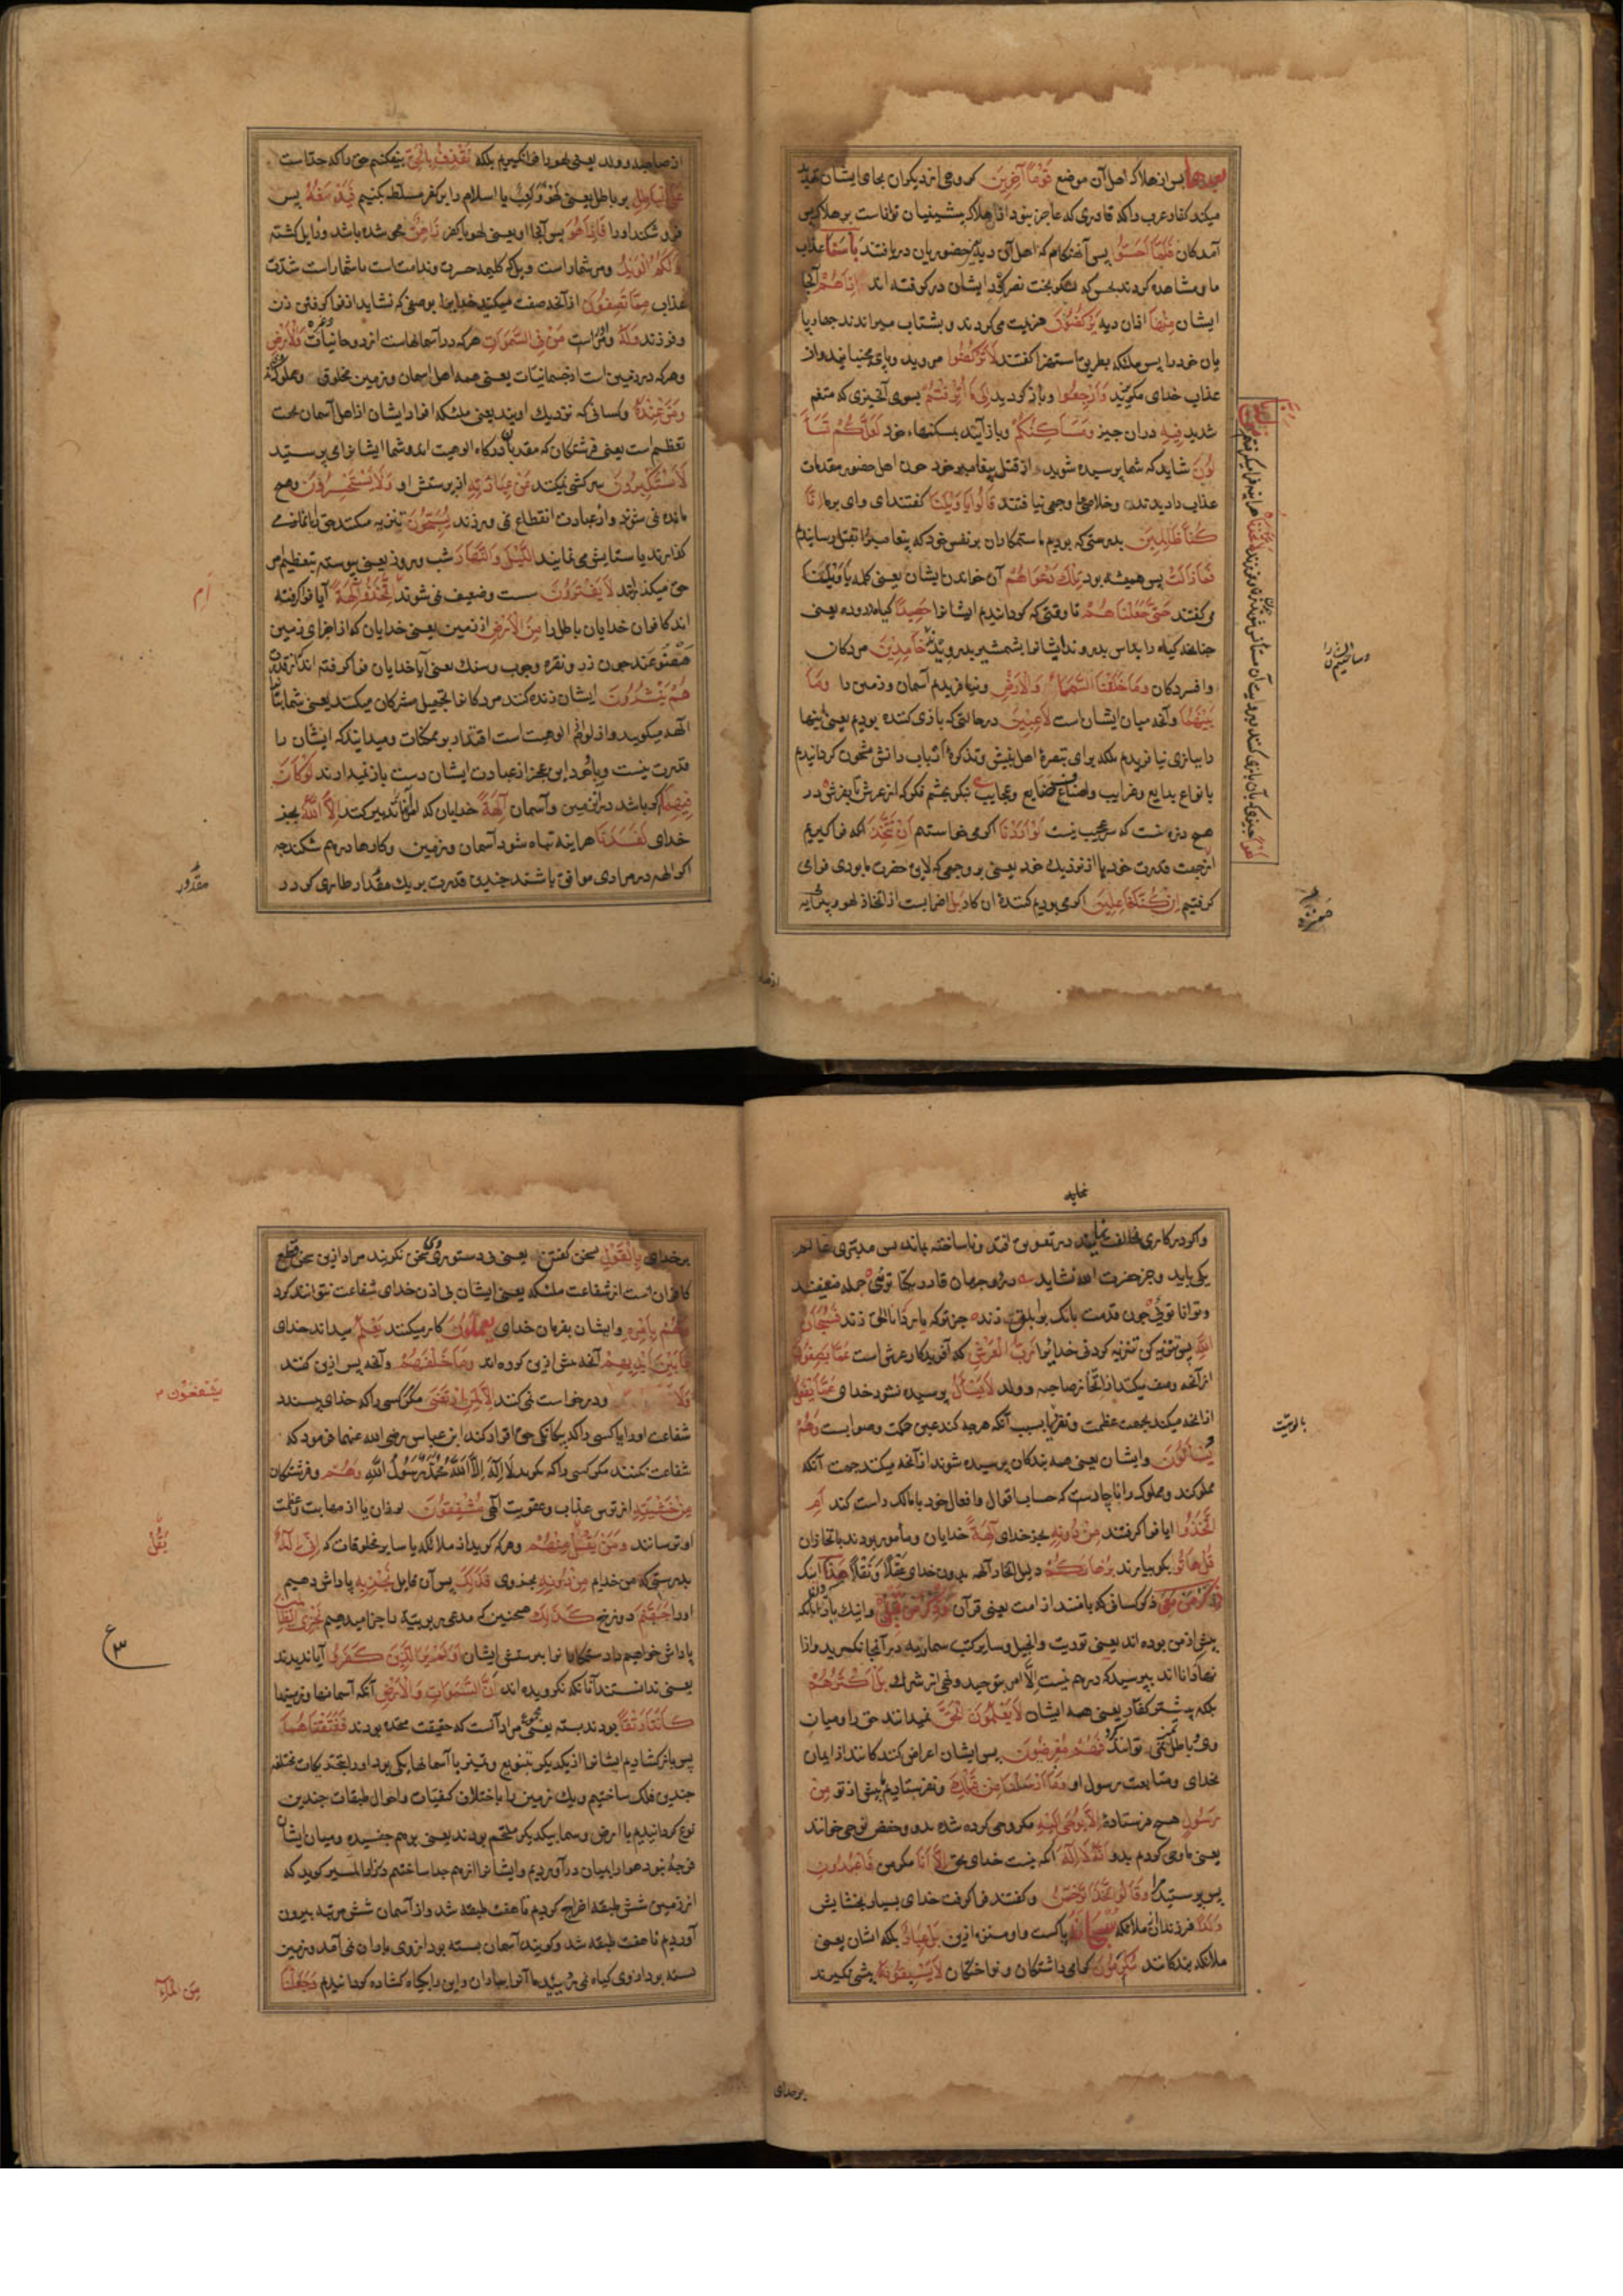 بعدها پس از هلاک اهل آن موضع قَوْمًا آخَرِينَ گروهی از دیگران بجای ایشان
میکند کفار عرب را که قادری که عاجز نبود از اهلاک پیشینیان تواناست بر هلاک پس
آمدگان فَلَمَّا أَحَسُّوا پس آن هنگام که اهل آن دیه حضوریان دریافتند بَأْسَنَا عذاب
ما و مشاهده کردند بحس که لشکر بخت نصر گرد ایشان درگرفته اند إِذَا هُمْ آنجا
ایشان مِنْهَا ازان دیه يَرْكُضُونَ هزیمت می کردند و بشتاب میراندند چهارپا
یان خود را پس ملئکه بطریق استهزا گفتند لَا تَرْكُضُوا مروید و پای مجنبانید و از
عذاب خدای مگریزید وَارْجِعُوا و باز گردید إِلَىٰ مَا أُتْرِفْتُمْ بسوی آنچیزی که متنعم
شدید فِيهِ دران چیز وَمَسَاكِنِكُمْ و باز آیید بمسکنهاء خود لَعَلَّكُمْ تُسْأَ
لُونَ شاید که شما پرسیده شوید از قتل پیغامبر خود چون اهل حضور مقدمات
عذاب را دیدند و خلاصی را وجهی نیافتند قَالُوا يَا وَيْلَنَا گفتند ای وای بر ما إِنَّا
كُنَّا ظَالِمِينَ بدرستی که بودیم ما ستمکاران بر نفس خود که پیغامبر را بقتل رسانیدیم
فَمَا زَالَتْ پس همیشه بود تِلْكَ دَعْوَاهُمْ آن خواندن ایشان یعنی کلمه یا ویلنا
می گفتند حَتَّىٰ جَعَلْنَاهُمْ تا وقتی که گردانیدیم ایشانرا حَصِيدًا گیاه دروده یعنی
چنانچه گیاه را بداس بدروند ایشانرا بشمشیر بدرویدند خَامِدِينَ مردگان
و افسردگان وَمَا خَلَقْنَا السَّمَاءَ وَالْأَرْضَ و نیافریدیم آسمان و زمین را وَمَا
بَيْنَهُمَا و آنچه میان ایشان است لَاعِبِينَ در حالتی که بازی کننده بودیم یعنی اینها
را ببازی نیافریدیم بلکه برای تبصرهٔ اهل بینش و تذکرهٔ ارباب دانش مشحون گردانیدیم
بانواع بدایع و غرایب و اصناع صنایع و عجایب نیکو بچشم فکر که از عرش تا بفرش در
هیچ ذره نیست که سر عجیب نیست لَوْ أَرَدْنَا اگر می خواستیم أَنْ نَتَّخِذَ آنکه فراگیریم
از جهت قدرت خود یا از نزدیک خود یعنی بر وجهی که لایق حضرت ما بودی فرامی
گرفتیم إِنْ كُنَّا فَاعِلِينَ اگر می بودیم کننده این کار بَلْ اضرابست از اتخاذ لهو
از صاحبه و ولد یعنی لهو را فرا نگیریم بلکه نَقْذِفُ بِالْحَقِّ بیفکنیم حق را که جد است
عَلَى الْبَاطِلِ بر باطل یعنی لهو و لعب یا اسلام را بر کفر مسلط بکنیم فَيَدْمَغُهُ پس
فرو شکند او را فَإِذَا هُوَ پس آنجا او یعنی لهو یا کفر زَاهِقٌ محو شده باشد و زایل گشته
وَلَكُمُ الْوَيْلُ و مر شمار است ویل که کلیمه حسرت و ندامت است یا شمار است شدت
عذاب مِمَّا تَصِفُونَ از آنچه صفت میکنید خدایرا بوصفی که نشاید از فرا گرفتن زن
و فرزند وَلَهُ و مر اوراست مَنْ فِي السَّمَوَاتِ هر که در آسمانهاست از روحانیات وَالْأَرْضِ
و هر که در زمین است از جسمانیات یعنی همه اهل آسمان و زمین مخلوق و مملوک اند
وَمَنْ عِنْدَهُ و کسانی که نزدیک اویند یعنی ملئکه افراد ایشان از اهل آسمان بجهت
تعظیم است یعنی فرشتگان که مقربان درگاه الوهیت اند و شما ایشانرا می پرستید
لَا يَسْتَكْبِرُونَ سرکشی نمیکنند عَنْ عِبَادَتِهِ از پرستش او وَلَا يَسْتَحْسِرُونَ و هم
مانده نمی شوند و از عبادت انقطاع نمی ورزند يُسَبِّحُونَ تنزیه میکنند حق را یا نماز می
گذارند یا ستایش می نمایند اللَّيْلَ وَالنَّهَارَ شب و روز یعنی پیوسته بتعظیم امر
حق میگذرانند لَا يَفْتُرُونَ سست و ضعیف نمی شوند أَمِ اتَّخَذُوا آلِهَةً آیا فرا گرفته
اند کافران خدایان باطل را مِنَ الْأَرْضِ از زمین یعنی خدایان که از اجزای زمین
مصنوعند چون زر و نقره و چوب و سنگ یعنی آیا خدایان فرا گرفته اند که از قدرت
هُمْ يُنْشِرُونَ ایشان زنده کنند مردگانرا تجهیل مشرکان میکند یعنی شما بتانرا
آلهه میگویید و از لوازم الوهیت است اقتدار بر ممکنات و میدانید که ایشان را
قدرت نیست و با وجود این عجز از عبادت ایشان دست باز نمیدارند لَوْ كَانَ
فِيهِمَا اگر باشد در زمین و آسمان آلِهَةٌ خدایان که تدبیر کنند إِلَّا اللَّهُ بجز
خدای لَفَسَدَتَا هر اینه تباه شود آسمان و زمین و کارها درهم شکند چه
اگر آلهه در مرادی موافق باشند چندین قدرت بر یک مقدور طاری گردد
مقدور
اَم
و اگر در کاری مخالف نمایند در تعویق افتد و ناساخته بماند پس مدبری عالم
یکی باید و جز حضرت اله نشاید در دو جهان قادر یکتا توئی جمله ضعیفند
و توانا توئی چون قدمت بانک بر ابلق زند جز تو که یارد که انا الحق زند فَسُبْحَانَ
اللَّهِ پس تنزیه کن تنزیه کردنی خدایرا رَبِّ الْعَرْشِ که آفریدگار عرش است عَمَّا يَصِفُونَ
از آنچه وصف میکنند از اتخاذ صاحبه و ولد لَا يُسْأَلُ پرسیده نشود خدای عَمَّا يَفْعَلُ
از آنچه میکند بجهت عظمت و تفرد یا بسبب آنکه هر چه کند عین حکمت و صوابست وَهُمْ
يُسْأَلُونَ و ایشان یعنی همه بندگان پرسیده شوند از آنچه میکنند جهت آنکه
مملوکند و مملوک را ناچار است که حساب اقوال و افعال خود با مالک راست کند أَمِ
اتَّخَذُوا ایا فرا گرفتند مِنْ دُونِهِ بجز خدای آلِهَةً خدایان و مامور بودند باتخاذ آن
قُلْ هَاتُوا بگو بیارند بُرْهَانَكُمْ دلیل اتخاذ آلهه بدون خدای عقلًا و نقلًا هَذَا اینک
ذِكْرُ مَنْ مَعِيَ ذکر کسانی که با منند از امت یعنی قرآن وَذِكْرُ مَنْ قَبْلِي و اینک یاد آنانکه
پیش از من بوده اند یعنی توریت و انجیل و سایر کتب سماویه در آنجا نگرید و از
نها دانا اند بپرسید که در هم نیست الا امر بتوحید و نهی از شرک بَلْ أَكْثَرُهُمْ
بلکه پیشتر کفار یعنی همه ایشان لَا يَعْلَمُونَ الْحَقَّ نمیدانند حق را و میان
وی و باطل تمیز نتوانند کرد فَهُمْ مُعْرِضُونَ پس ایشان اعراض کنندگانند از ایمان
بخدای و متابعت رسول او وَمَا أَرْسَلْنَا مِنْ قَبْلِكَ و نفرستادیم پیش از تو مِنْ
رَسُولٍ هیچ فرستادهٔ إِلَّا نُوحِي إِلَيْهِ مگر وحی کرده شده بدو و حفص نوحی خواند
یعنی ما وحی کردیم بدو أَنَّهُ لَا إِلَهَ آنکه نیست خدای بحق إِلَّا أَنَا مگر من فَاعْبُدُونِ
پس بپرستید مرا وَقَالُوا اتَّخَذَ الرَّحْمَنُ و گفتند فرا گرفت خدای بسیار بخشایش
وَلَدًا فرزند از ملائکه سُبْحَانَهُ پاکست او و منزه ازین بَلْ عِبَادٌ بلکه ایشان یعنی
ملائکه بندگانند مُكْرَمُونَ گرامی داشتگان و نواختگان لَا يَسْبِقُونَهُ پیشی نگیرند
برخدای
بر خدای بِالْقَوْلِ بسخن گفتن یعنی بی دستوری وی سخن نگویند مراد ازین سخن قطع
کافران است از شفاعت ملئکه یعنی ایشان بی اذن خدای شفاعت نتوانند کرد
وَهُمْ بِأَمْرِهِ و ایشان بفرمان خدای يَعْمَلُونَ کار میکنند يَعْلَمُ میداند خدای
مَا بَيْنَ أَيْدِيهِمْ آنچه پیش ازین کرده اند وَمَا خَلْفَهُمْ و آنچه پس ازین کنند
وَلَا و درخواست نمی کنند إِلَّا لِمَنِ ارْتَضَى مگر کسی را که خدای پسندد
شفاعت او را یا کسی را که بیگانگی حق اقرار کند ابن عباس رضی الله عنهما فرمود که
شفاعت نکنند مگر کسی را که گوید لَا إِلَهَ إِلَّا اللَّهُ مُحَمَّدٌ رَسُولُ اللَّهِ وَهُمْ و فرشتگان
مِنْ خَشْيَتِهِ از ترس عذاب و عقوبت الهی مُشْفِقُونَ لرزان یا از مهابت و عظمت
او ترسانند وَمَنْ يَقُلْ مِنْهُمْ و هر که گوید از ملائکه یا سایر مخلوقات که إِنِّي إِلَهٌ
بدرستی که من خدایم مِنْ دُونِهِ بجز وی فَذَلِكَ پس آن قایل نَجْزِيهِ پاداش دهیم
او را جَهَنَّمَ دوزخ كَذَلِكَ همچنین که مدعی ربوبیت را جزا میدهیم نَجْزِي الظَّالِمِينَ
پاداش خواهیم داد ستمکارانرا بپرستش ایشان أَوَلَمْ يَرَ الَّذِينَ كَفَرُوا آیا ندیدند
یعنی ندانستند آنانکه نگرویده اند أَنَّ السَّمَوَاتِ وَالْأَرْضَ آنکه آسمانها و زمینها
كَانَتَا رَتْقًا بودند بسته یعنی مجموع مراد آنست که حقیقت متحده بودند فَفَتَقْنَاهُمَا
پس باز گشادیم ایشانرا از یکدیگر بتنویع و تمیز یا آسمانها یکی بود او را بتحریکات مختلفه
چندین فلک ساختیم و یک زمین را باختلاف کیفیات و احوال طبقات چندین
نوع گردانیدیم یا ارض و سما بیکدیگر ملتحم بودند یعنی برهم چفسیده و میان ایشان
فرجهٔ نبود هوا را بمیان در آوردیم و ایشانرا از هم جدا ساختیم و در زاد المسیر گوید که
از زمین شش طبقه اخراج کردیم تا هفت طبقه شد و از آسمان شش مرتبه بیرون
آوردیم تا هفت طبقه شد و گویند آسمان بسته بود از وی باران نمی آمد و زمین
بسته بود از وی گیاه نمی رویید ما آنرا بباران و این را بگیاه گشاده گردانیدیم وَجَعَلْنَا
يَشْفَعُونَ
يَقُلْ
ع
۳
مِنَ الْمَاءِ